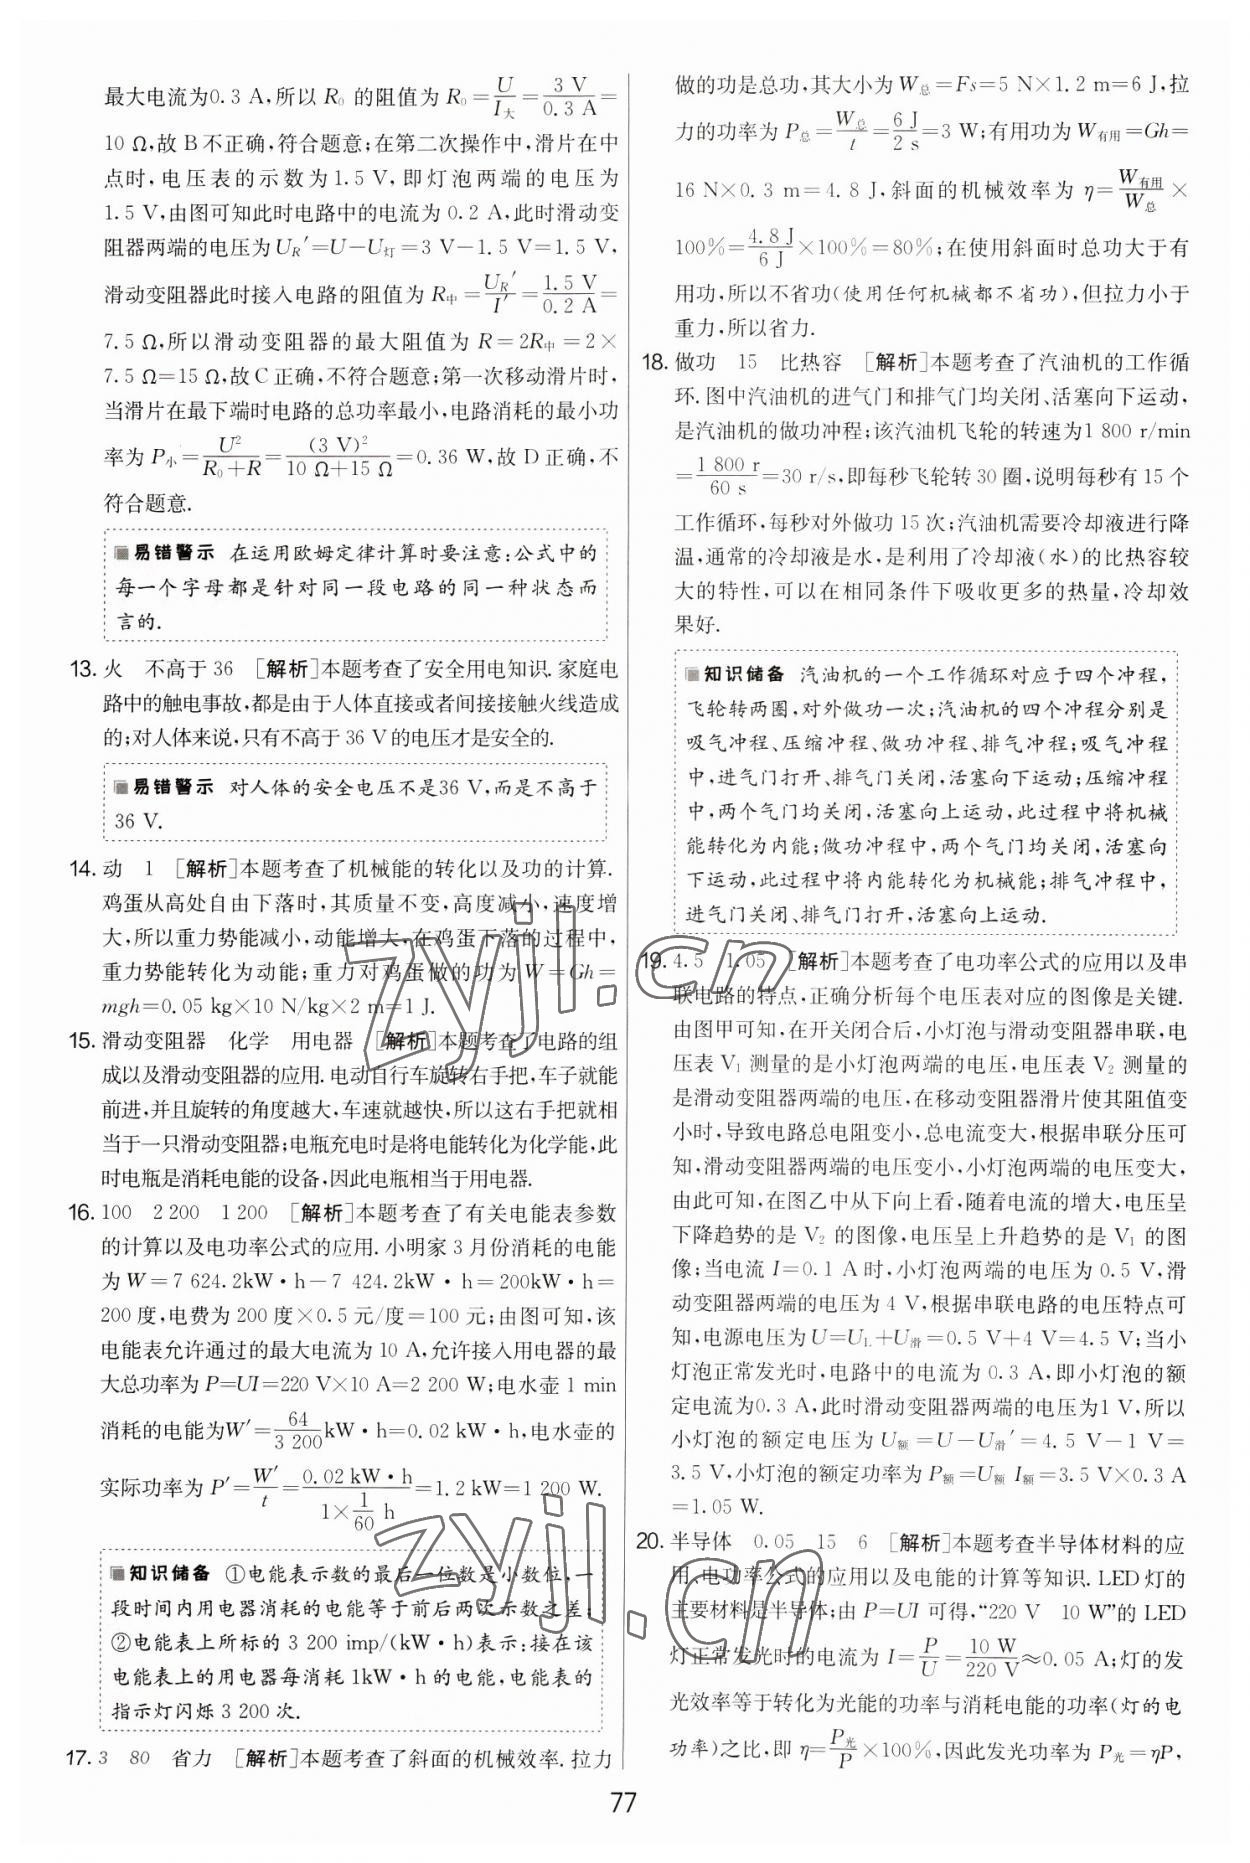 最大电流为0.3 A,所以 R₀ 的阻值为 R₀=U/I大=3 V/0.3 A=
10 Ω,故 B不正确,符合题意;在第二次操作中,滑片在中
点时,电压表的示数为1.5 V,即灯泡两端的电压为
1.5 V,由图可知此时电路中的电流为 0.2 A,此时滑动变
阻器两端的电压为 U_R′=U-U灯=3 V-1.5 V=1.5 V,
滑动变阻器此时接入电路的阻值为 R中=U_R′/I′=1.5 V/0.2 A=
7.5 Ω,所以滑动变阻器的最大阻值为 R=2R中=2×
7.5 Ω=15 Ω,故 C 正确,不符合题意;第一次移动滑片时,
当滑片在最下端时电路的总功率最小,电路消耗的最小功
率为 P小=U²/(R₀+R)=(3 V)²/(10 Ω+15 Ω)=0.36 W,故 D正确,不
符合题意.
易错警示 在运用欧姆定律计算时要注意:公式中的
每一个字母都是针对同一段电路的同一种状态而
言的.
13. 火 不高于 36 [解析]本题考查了安全用电知识.家庭电
路中的触电事故,都是由于人体直接或者间接接触火线造成
的;对人体来说,只有不高于 36 V的电压才是安全的.
易错警示 对人体的安全电压不是36 V,而是不高于
36 V.
14. 动 1 [解析]本题考查了机械能的转化以及功的计算.
鸡蛋从高处自由下落时,其质量不变,高度减小,速度增
大,所以重力势能减小,动能增大,在鸡蛋下落的过程中,
重力势能转化为动能;重力对鸡蛋做的功为 W=Gh=
mgh=0.05 kg×10 N/kg×2 m=1 J.
15. 滑动变阻器 化学 用电器 [解析]本题考查了电路的组
成以及滑动变阻器的应用.电动自行车旋转右手把,车子就能
前进,并且旋转的角度越大,车速就越快,所以这右手把就相
当于一只滑动变阻器;电瓶充电时是将电能转化为化学能,此
时电瓶是消耗电能的设备,因此电瓶相当于用电器.
16. 100 2 200 1 200 [解析]本题考查了有关电能表参数
的计算以及电功率公式的应用.小明家 3 月份消耗的电能
为 W=7 624.2kW·h-7 424.2kW·h=200kW·h=
200 度,电费为 200 度×0.5 元/度=100 元;由图可知,该
电能表允许通过的最大电流为 10 A,允许接入用电器的最
大总功率为 P=UI=220 V×10 A=2 200 W;电水壶 1 min
消耗的电能为W′=64/3 200kW·h=0.02 kW·h,电水壶的
实际功率为 P′=W′/t=0.02 kW·h/(1×1/60 h)=1.2 kW=1 200 W.
知识储备 ①电能表示数的最后一位数是小数位,一
段时间内用电器消耗的电能等于前后两次示数之差;
②电能表上所标的 3 200 imp/(kW·h)表示:接在该
电能表上的用电器每消耗 1kW·h 的电能,电能表的
指示灯闪烁 3 200 次.
17. 3 80 省力 [解析]本题考查了斜面的机械效率.拉力
做的功是总功,其大小为 W总=Fs=5 N×1.2 m=6 J,拉
力的功率为 P总=W总/t=6 J/2 s=3 W;有用功为 W有用=Gh=
16 N×0.3 m=4.8 J,斜面的机械效率为 η=W有用/W总×
100%=4.8 J/6 J×100%=80%;在使用斜面时总功大于有
用功,所以不省功(使用任何机械都不省功),但拉力小于
重力,所以省力.
18. 做功 15 比热容 [解析]本题考查了汽油机的工作循
环.图中汽油机的进气门和排气门均关闭、活塞向下运动,
是汽油机的做功冲程;该汽油机飞轮的转速为1 800 r/min
=1 800 r/60 s=30 r/s,即每秒飞轮转 30 圈,说明每秒有 15 个
工作循环,每秒对外做功 15 次;汽油机需要冷却液进行降
温,通常的冷却液是水,是利用了冷却液(水)的比热容较
大的特性,可以在相同条件下吸收更多的热量,冷却效
果好.
知识储备 汽油机的一个工作循环对应于四个冲程,
飞轮转两圈,对外做功一次;汽油机的四个冲程分别是
吸气冲程、压缩冲程、做功冲程、排气冲程;吸气冲程
中,进气门打开、排气门关闭,活塞向下运动;压缩冲程
中,两个气门均关闭,活塞向上运动,此过程中将机械
能转化为内能;做功冲程中,两个气门均关闭,活塞向
下运动,此过程中将内能转化为机械能;排气冲程中,
进气门关闭、排气门打开,活塞向上运动.
19. 4.5 1.05 [解析]本题考查了电功率公式的应用以及串
联电路的特点,正确分析每个电压表对应的图像是关键.
由图甲可知,在开关闭合后,小灯泡与滑动变阻器串联,电
压表 V₁ 测量的是小灯泡两端的电压,电压表 V₂ 测量的
是滑动变阻器两端的电压,在移动变阻器滑片使其阻值变
小时,导致电路总电阻变小,总电流变大,根据串联分压可
知,滑动变阻器两端的电压变小,小灯泡两端的电压变大,
由此可知,在图乙中从下向上看,随着电流的增大,电压呈
下降趋势的是 V₂ 的图像,电压呈上升趋势的是 V₁ 的图
像;当电流 I=0.1 A时,小灯泡两端的电压为 0.5 V,滑
动变阻器两端的电压为 4 V,根据串联电路的电压特点可
知,电源电压为 U=U_L+U滑=0.5 V+4 V=4.5 V;当小
灯泡正常发光时,电路中的电流为 0.3 A,即小灯泡的额
定电流为0.3 A,此时滑动变阻器两端的电压为1 V,所以
小灯泡的额定电压为 U额=U-U滑′=4.5 V-1 V=
3.5 V,小灯泡的额定功率为 P额=U额 I额=3.5 V×0.3 A
=1.05 W.
20. 半导体 0.05 15 6 [解析]本题考查半导体材料的应
用、电功率公式的应用以及电能的计算等知识.LED 灯的
主要材料是半导体;由 P=UI 可得,“220 V 10 W”的 LED
灯正常发光时的电流为 I=P/U=10 W/220 V≈0.05 A;灯的发
光效率等于转化为光能的功率与消耗电能的功率(灯的电
功率)之比,即 η=P光/P×100%,因此发光功率为 P光=ηP,
77
zyjl.cn
zyjl.cn